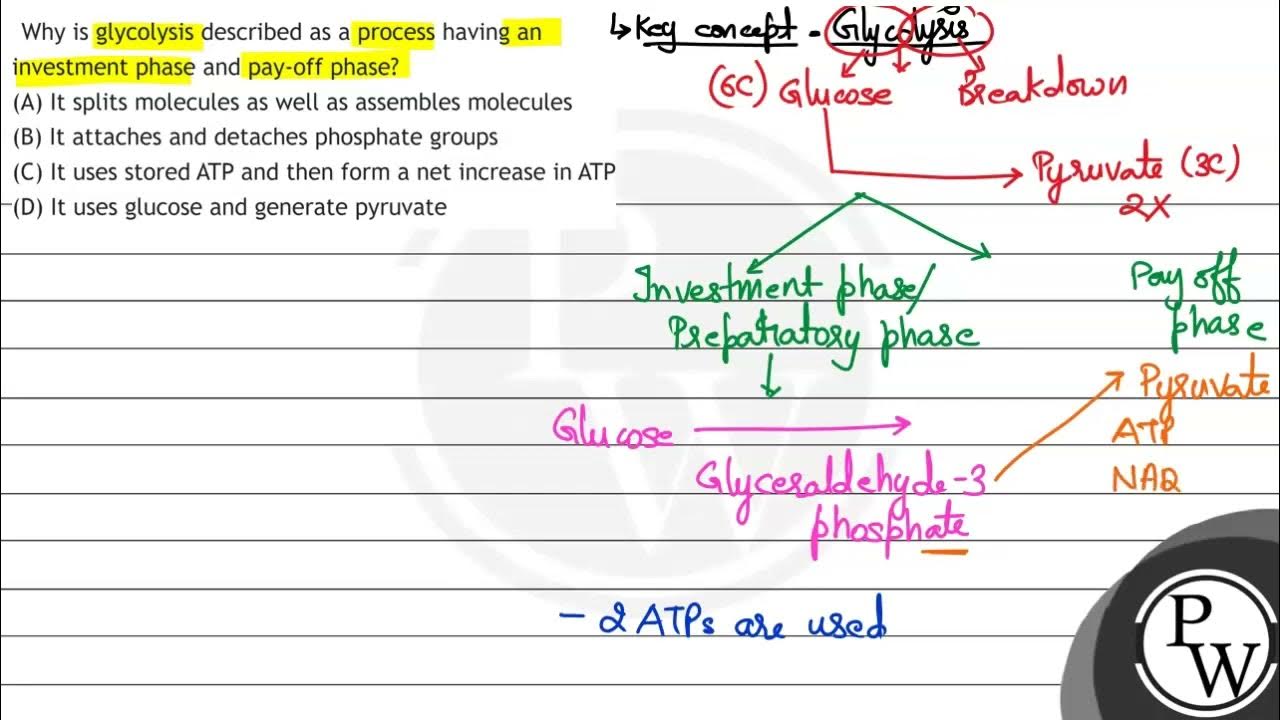 Why is glycolysis described as a process having an
investment phase and pay-off phase?
(A) It splits molecules as well as assembles molecules
(B) It attaches and detaches phosphate groups
(C) It uses stored ATP and then form a net increase in ATP
(D) It uses glucose and generate pyruvate
↳ Key concept - Glycolysis
(6C) Glucose Breakdown
Pyruvate (3C)
2X
Investment phase/
Preparatory phase
Pay off
phase
Glucose
Glyceraldehyde-3
phosphate
Pyruvate
ATP
NAD
- 2 ATPs are used
PW
PW